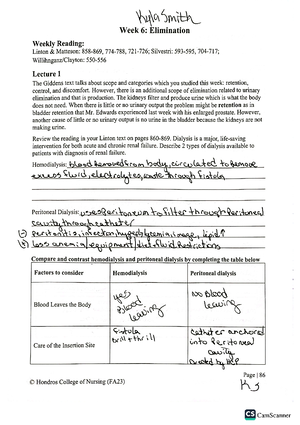 Kyla Smith
Week 6: Elimination
Weekly Reading:
Linton & Matteson: 858-869, 774-788, 721-726; Silvestri: 593-595, 704-717;
Willihnganz/Clayton: 550-556
Lecture 1
The Giddens text talks about scope and categories which you studied this week: retention,
control, and discomfort. However, there is an additional scope of elimination related to urinary
elimination and that is production. The kidneys filter and produce urine which is what the body
does not need. When there is little or no urinary output the problem might be retention as in
bladder retention that Mr. Edwards experienced last week with his enlarged prostate. However,
another cause of little or no urinary output is no urine in the bladder because the kidneys are not
making urine.
Review the reading in your Linton text on pages 860-869. Dialysis is a major, life-saving
intervention for both acute and chronic renal failure. Describe 2 types of dialysis available to
patients with diagnosis of renal failure.
Hemodialysis: blood removed from body, circulated to remove
excess fluid, electrolytes, waste through fistula
Peritoneal Dialysis: uses peritoneum to filter through peritoneal
cavity through catheter
(-) peritonitis, infection, hyperglycemia, image, lipid↑
(+) less anemia, equipment, diet, fluid restrictions
Compare and contrast hemodialysis and peritoneal dialysis by completing the table below
Factors to consider
Hemodialysis
Peritoneal dialysis
Blood Leaves the Body
yes
Blood
leaving
No Blood
leaving
Care of the Insertion Site
fistula
thrill
catheter anchored
into peritoneal
cavity
by HCP
Page | 86
© Hondros College of Nursing (FA23)
KS
CS CamScanner